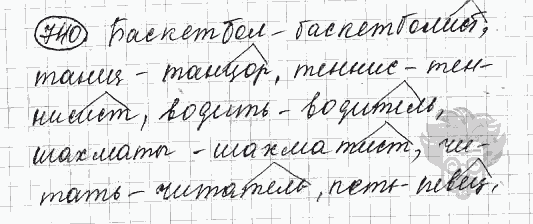 740 Баскетбол – баскетболист,
танец – танцор, теннис – тен-
нисист, водить – водитель,
шахматы – шахматист, чи-
тать – читатель, петь – певец.